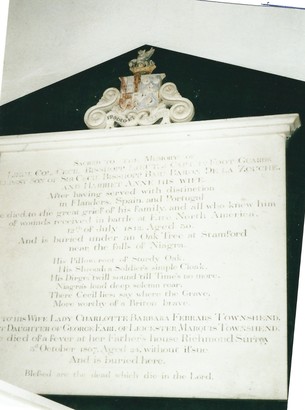 Sacred to the Memory of
Lieut. Col. Cecil Bisshopp
Guards
Eldest Son of Sir Cecil Bisshopp Bart. Baron De la Zouche,
and Harriet Anne his Wife
After having served with distinction
in Flanders, Spain, and Portugal
He died to the great grief of his family, and all who knew him
of wounds received in battle at Fort North America.
July 1813. Aged 30.
And is buried under an Oak Tree at Stamford
near the falls of Niagra.
His Pillow, root of Sturdy Oak,
His Shroud a Soldier's simple Cloak,
His Dirge, will sound till Time's no more,
Niagra's loud deep solemn roar.
There Cecil lies, say where the Grave,
More worthy of a Briton brave.
to his Wife Lady Charlotte Barbara Ferrars Townshend,
Daughter of George Earl of Leicester, Marquis Townshend,
died of a fever at her Fathers house Richmond Surrey
October 1807, Aged 25, without issue
And is buried here.
Blessed are the dead which die in the Lord.